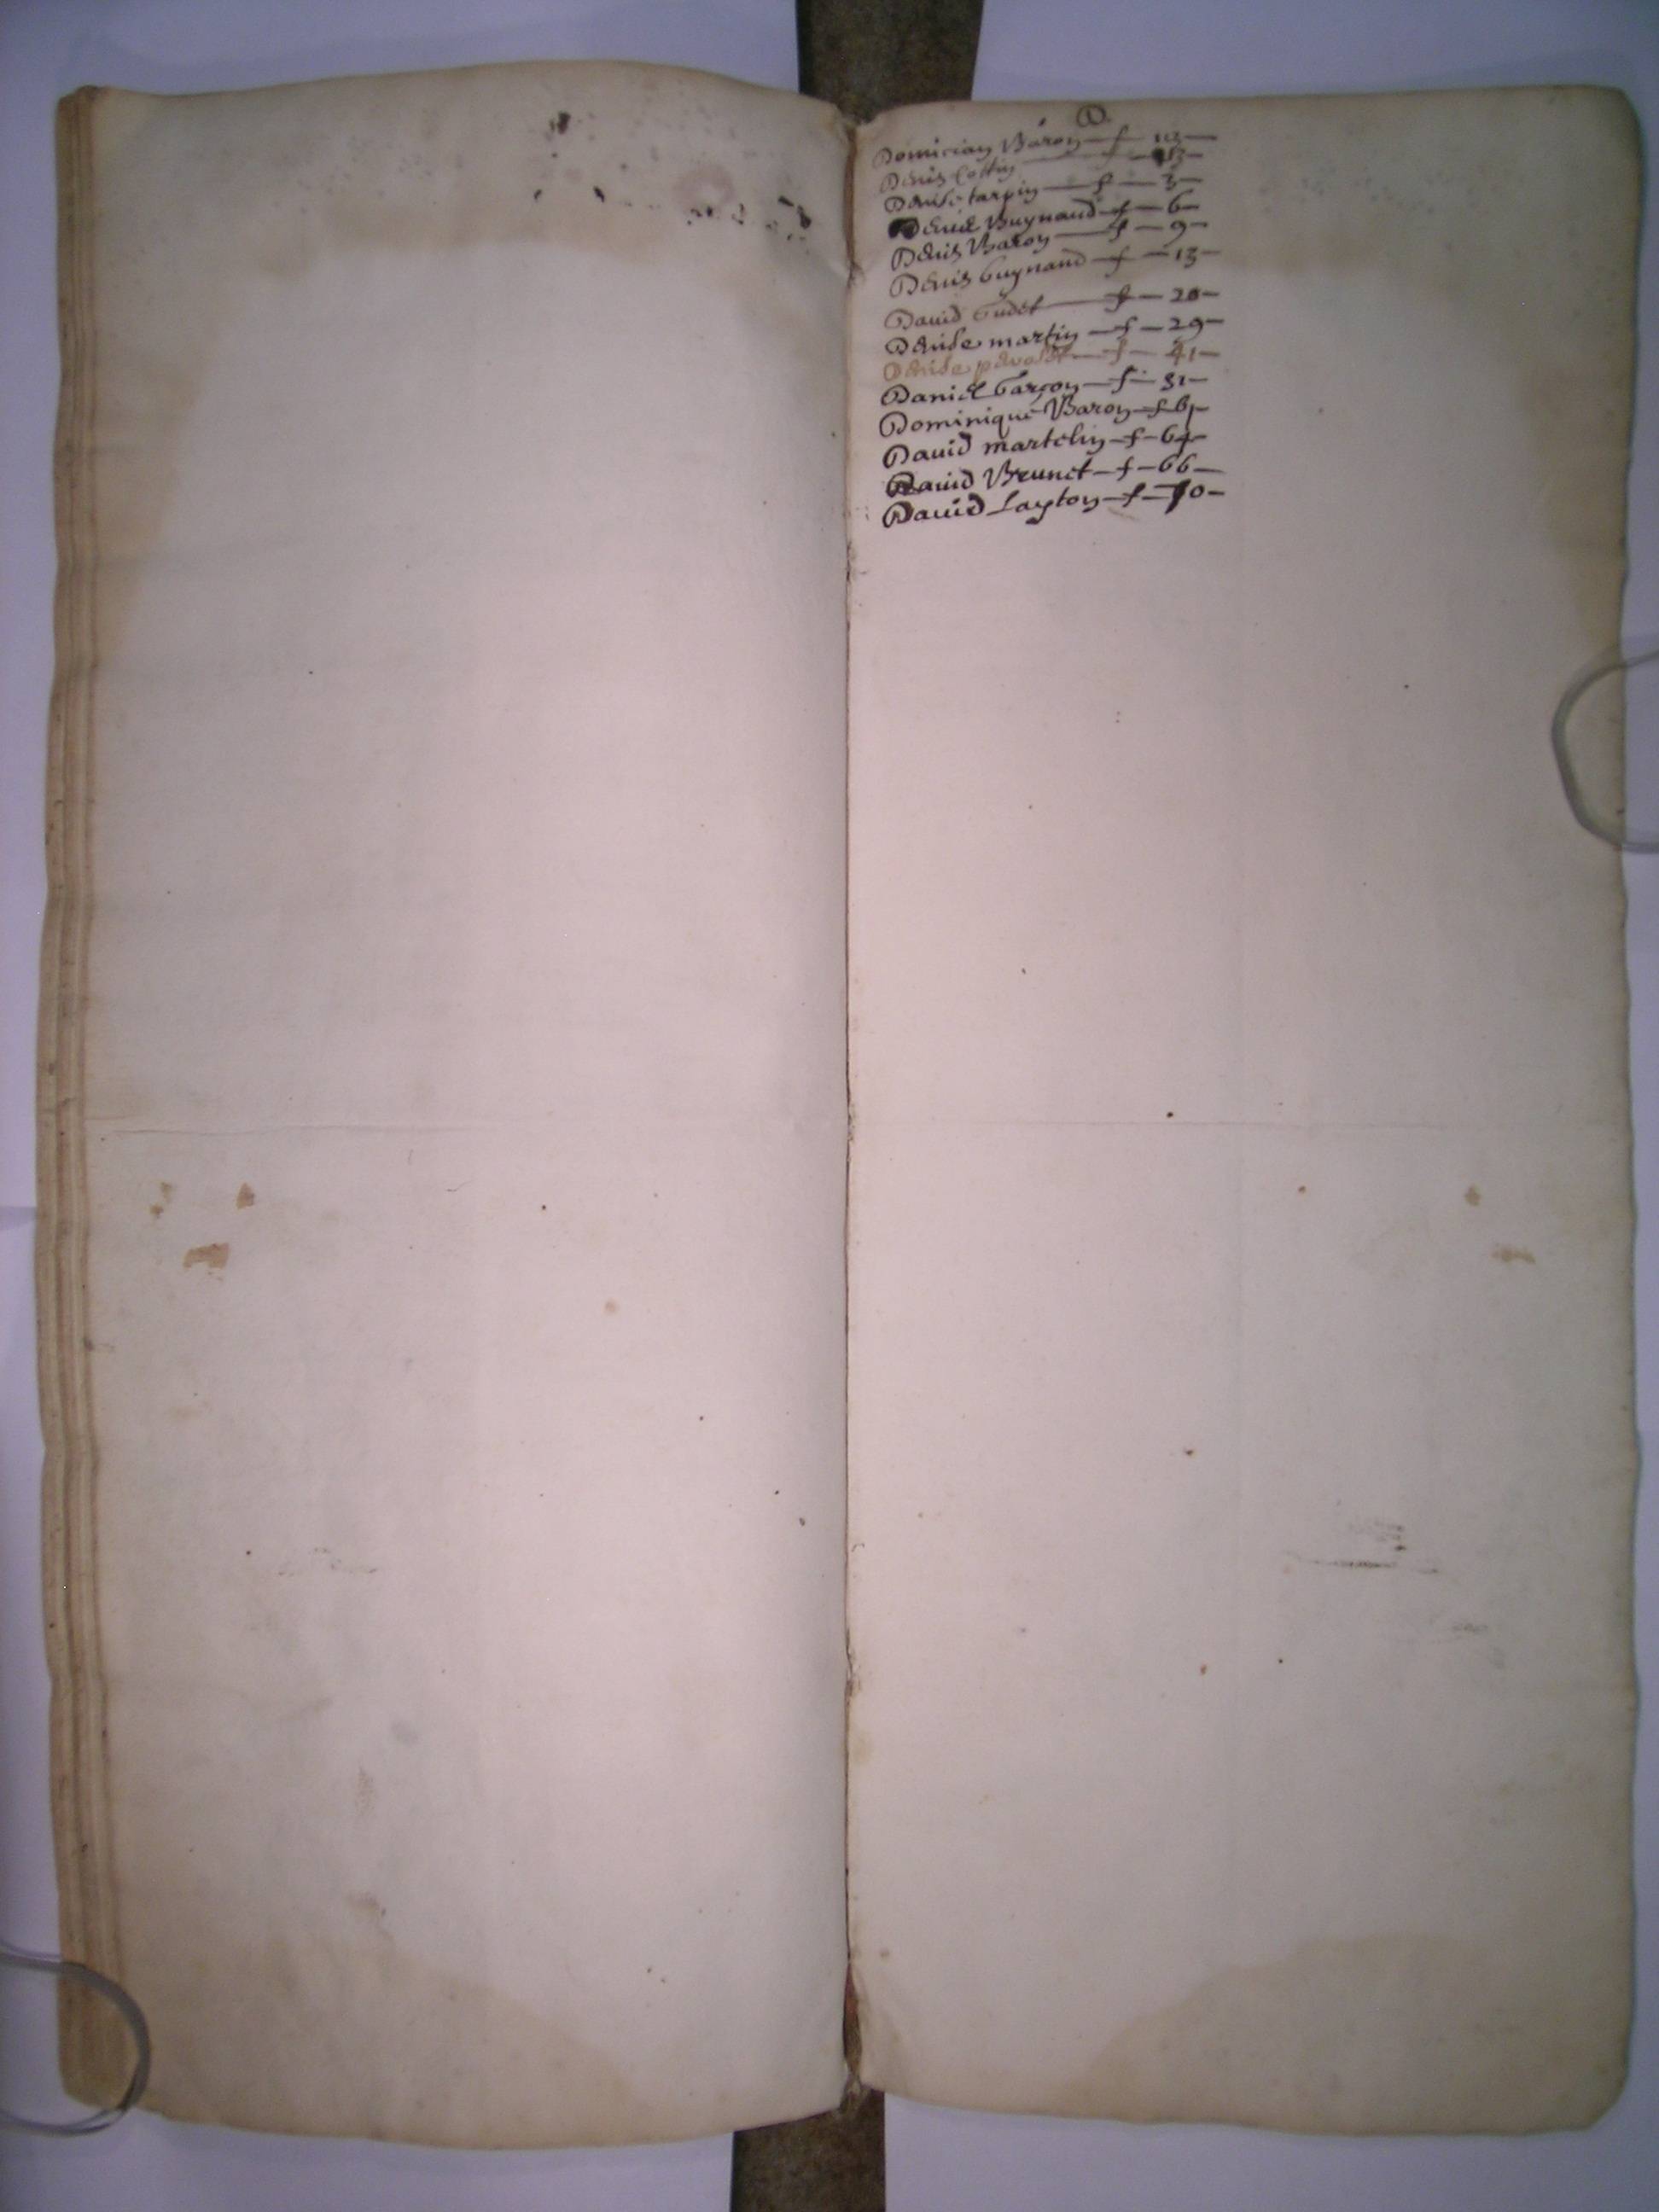 D.
Domician Baron — f — 113 —
Denis Cottin — f — 13 —
Denise tarpin — f — 3 —
Buynaud — f — 6 —
Denis Baron — f — 9 —
Denis Guynaud — f — 13 —
Dauid — f — 20 —
Denise martin — f — 29 —
Denise — f — 41 —
Daniel Garçon — f — 51 —
Dominique Baron — f — 61 —
Dauid martelin — f — 64 —
Dauid Brunet — f — 66 —
Dauid Layton — f — 70 —